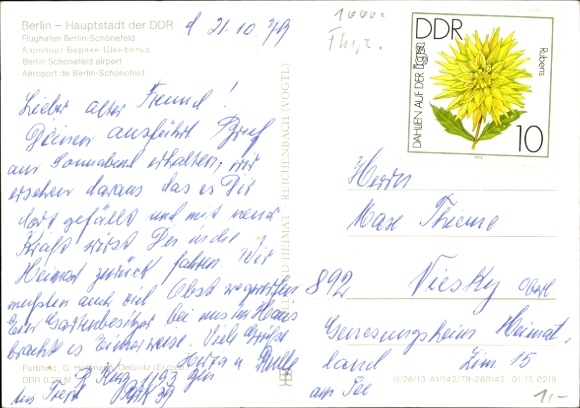 Berlin – Hauptstadt der DDR
Flughafen Berlin-Schönefeld
Аэропорт Берлин-Шёнефельд
Berlin-Schönefeld airport
Aéroport de Berlin-Schönefeld
d. 21.10.79
1000.-
DDR
DAHLIEN AUF DER iga
Rubens
10
1979
Lieber alter Freund!
Deinen ausführl Brief
am Sonnabend erhalten, wir
ersehen daraus das es Dir
dort gefällt und mit neuer
Kraft wirst Du in die
Heimat zurück fahren. Wir
mußten auch viel Obst wegwerfen
Ein Gartenbesitzer bei uns im Haus
bracht es Eimerweise. Viele Grüße
Herta u
1193 Bln
BILD UND HEIMAT · REICHENBACH (VOGTL)
Herrn
Max Thieme
892 Niesky
Genesungsheim Heimat-
land Zim. 15
am See
Farbfoto: G.
DDR 0,20 M
III/26/13 A1/142/79-280142 01 15 0219
1,-